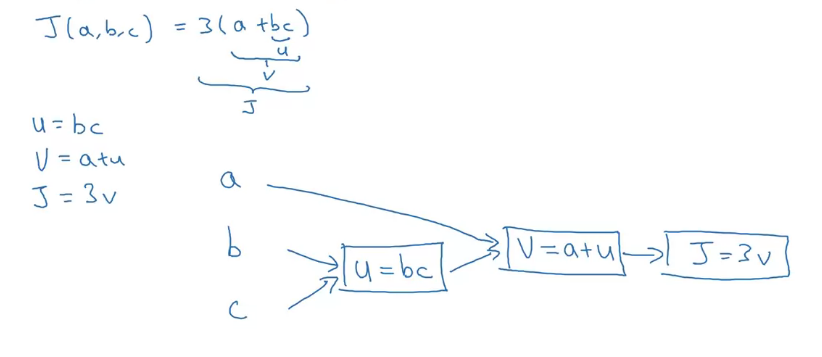 J(a,b,c) = 3(a+bc)
u
V
J
u = bc
V = a+u
J = 3v
a
b
c
u = bc
V = a+u
J = 3v